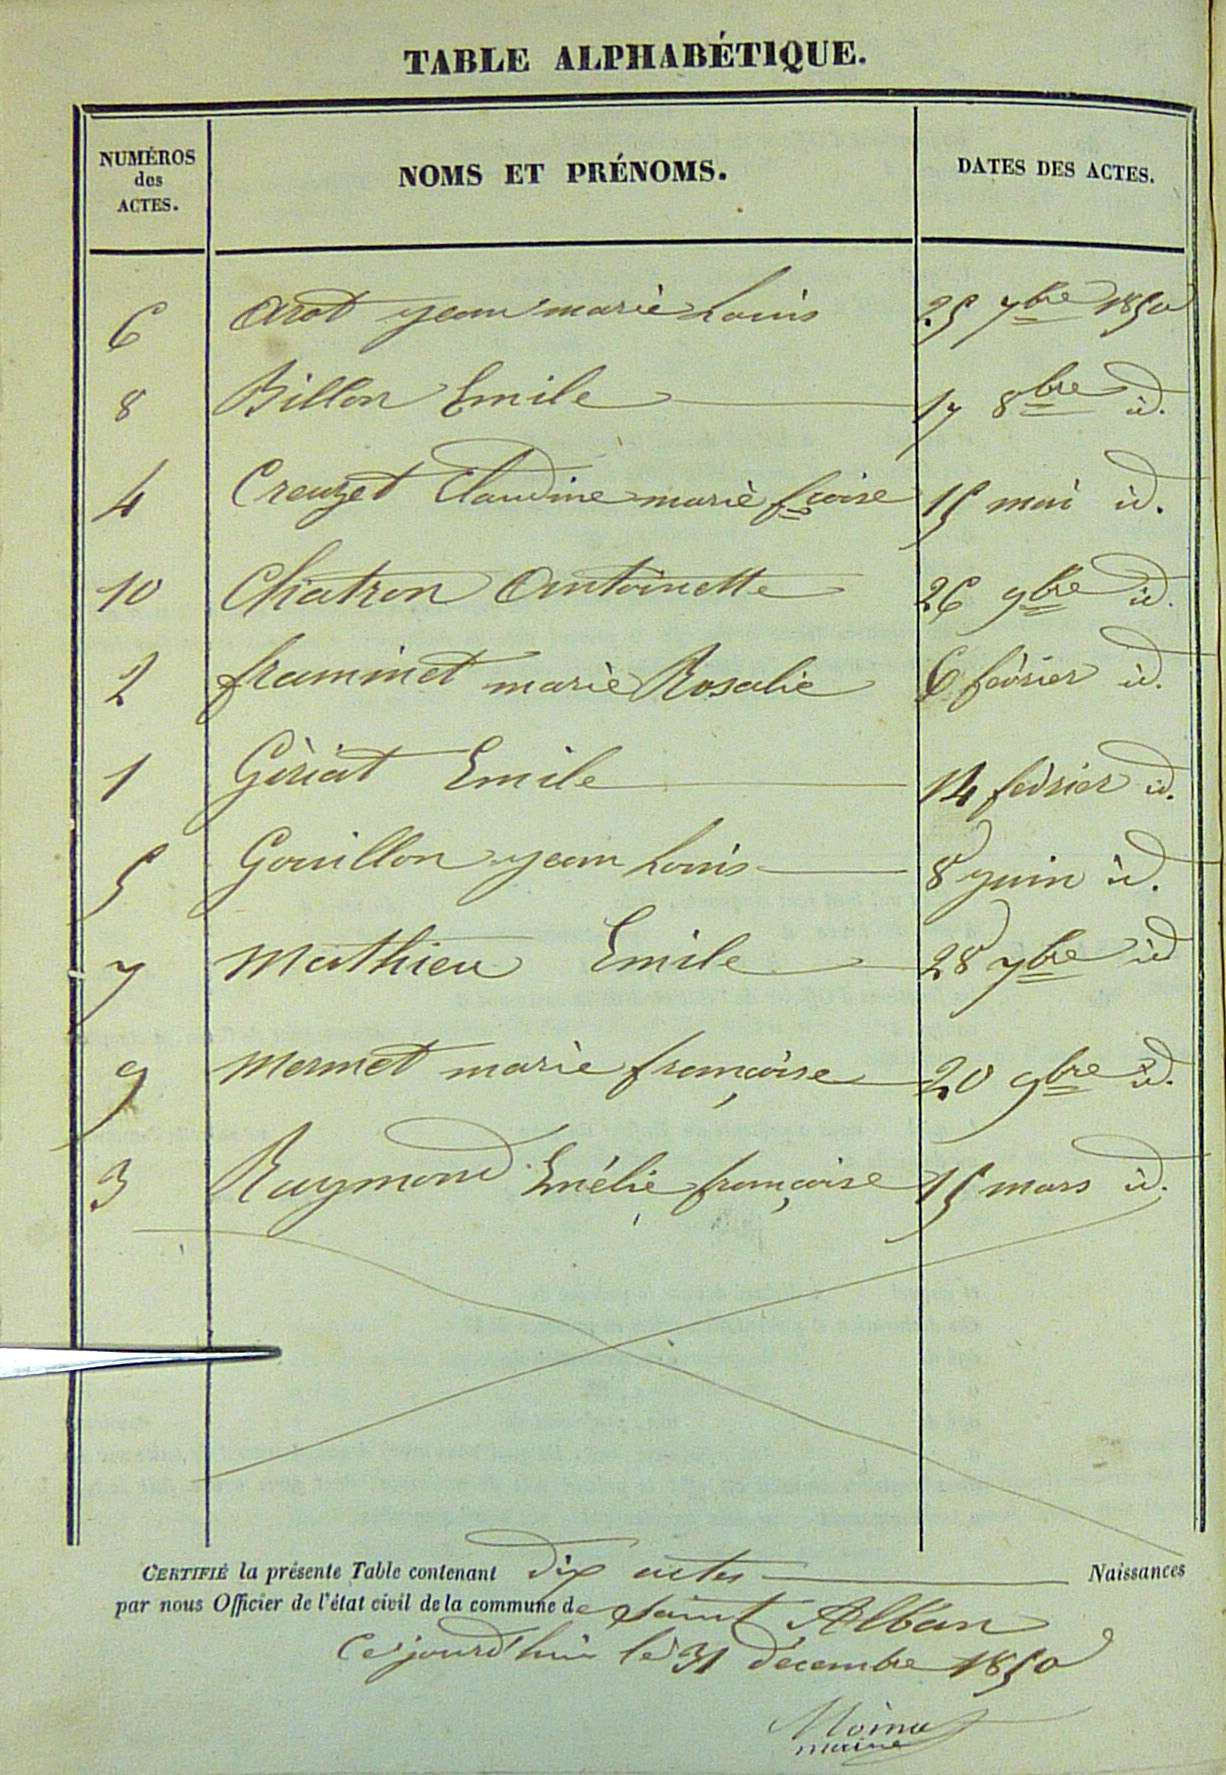 TABLE ALPHABÉTIQUE.
NUMÉROS des ACTES. NOMS ET PRÉNOMS. DATES DES ACTES.
6 Arot jean marie Louis 25 7bre 1850
8 Billon Emile 17 8bre id.
4 Creuzet Claudine marie fçoise 15 mai id.
10 Chatron Antoinette 26 9bre id.
2 framinet marie Rosalie 6 février id.
1 Gériat Emile 14 février id.
5 Gouillon jean Louis 8 juin id.
7 Mathieu Emile 28 7bre id
9 Mermet marie françoise 20 9bre id.
3 Raymond Emélie françoise 15 mars id.
CERTIFIÉ la présente Table contenant dix actes Naissances
par nous Officier de l'état civil de la commune de Saint Alban
Cejourd'hui le 31 décembre 1850
maire